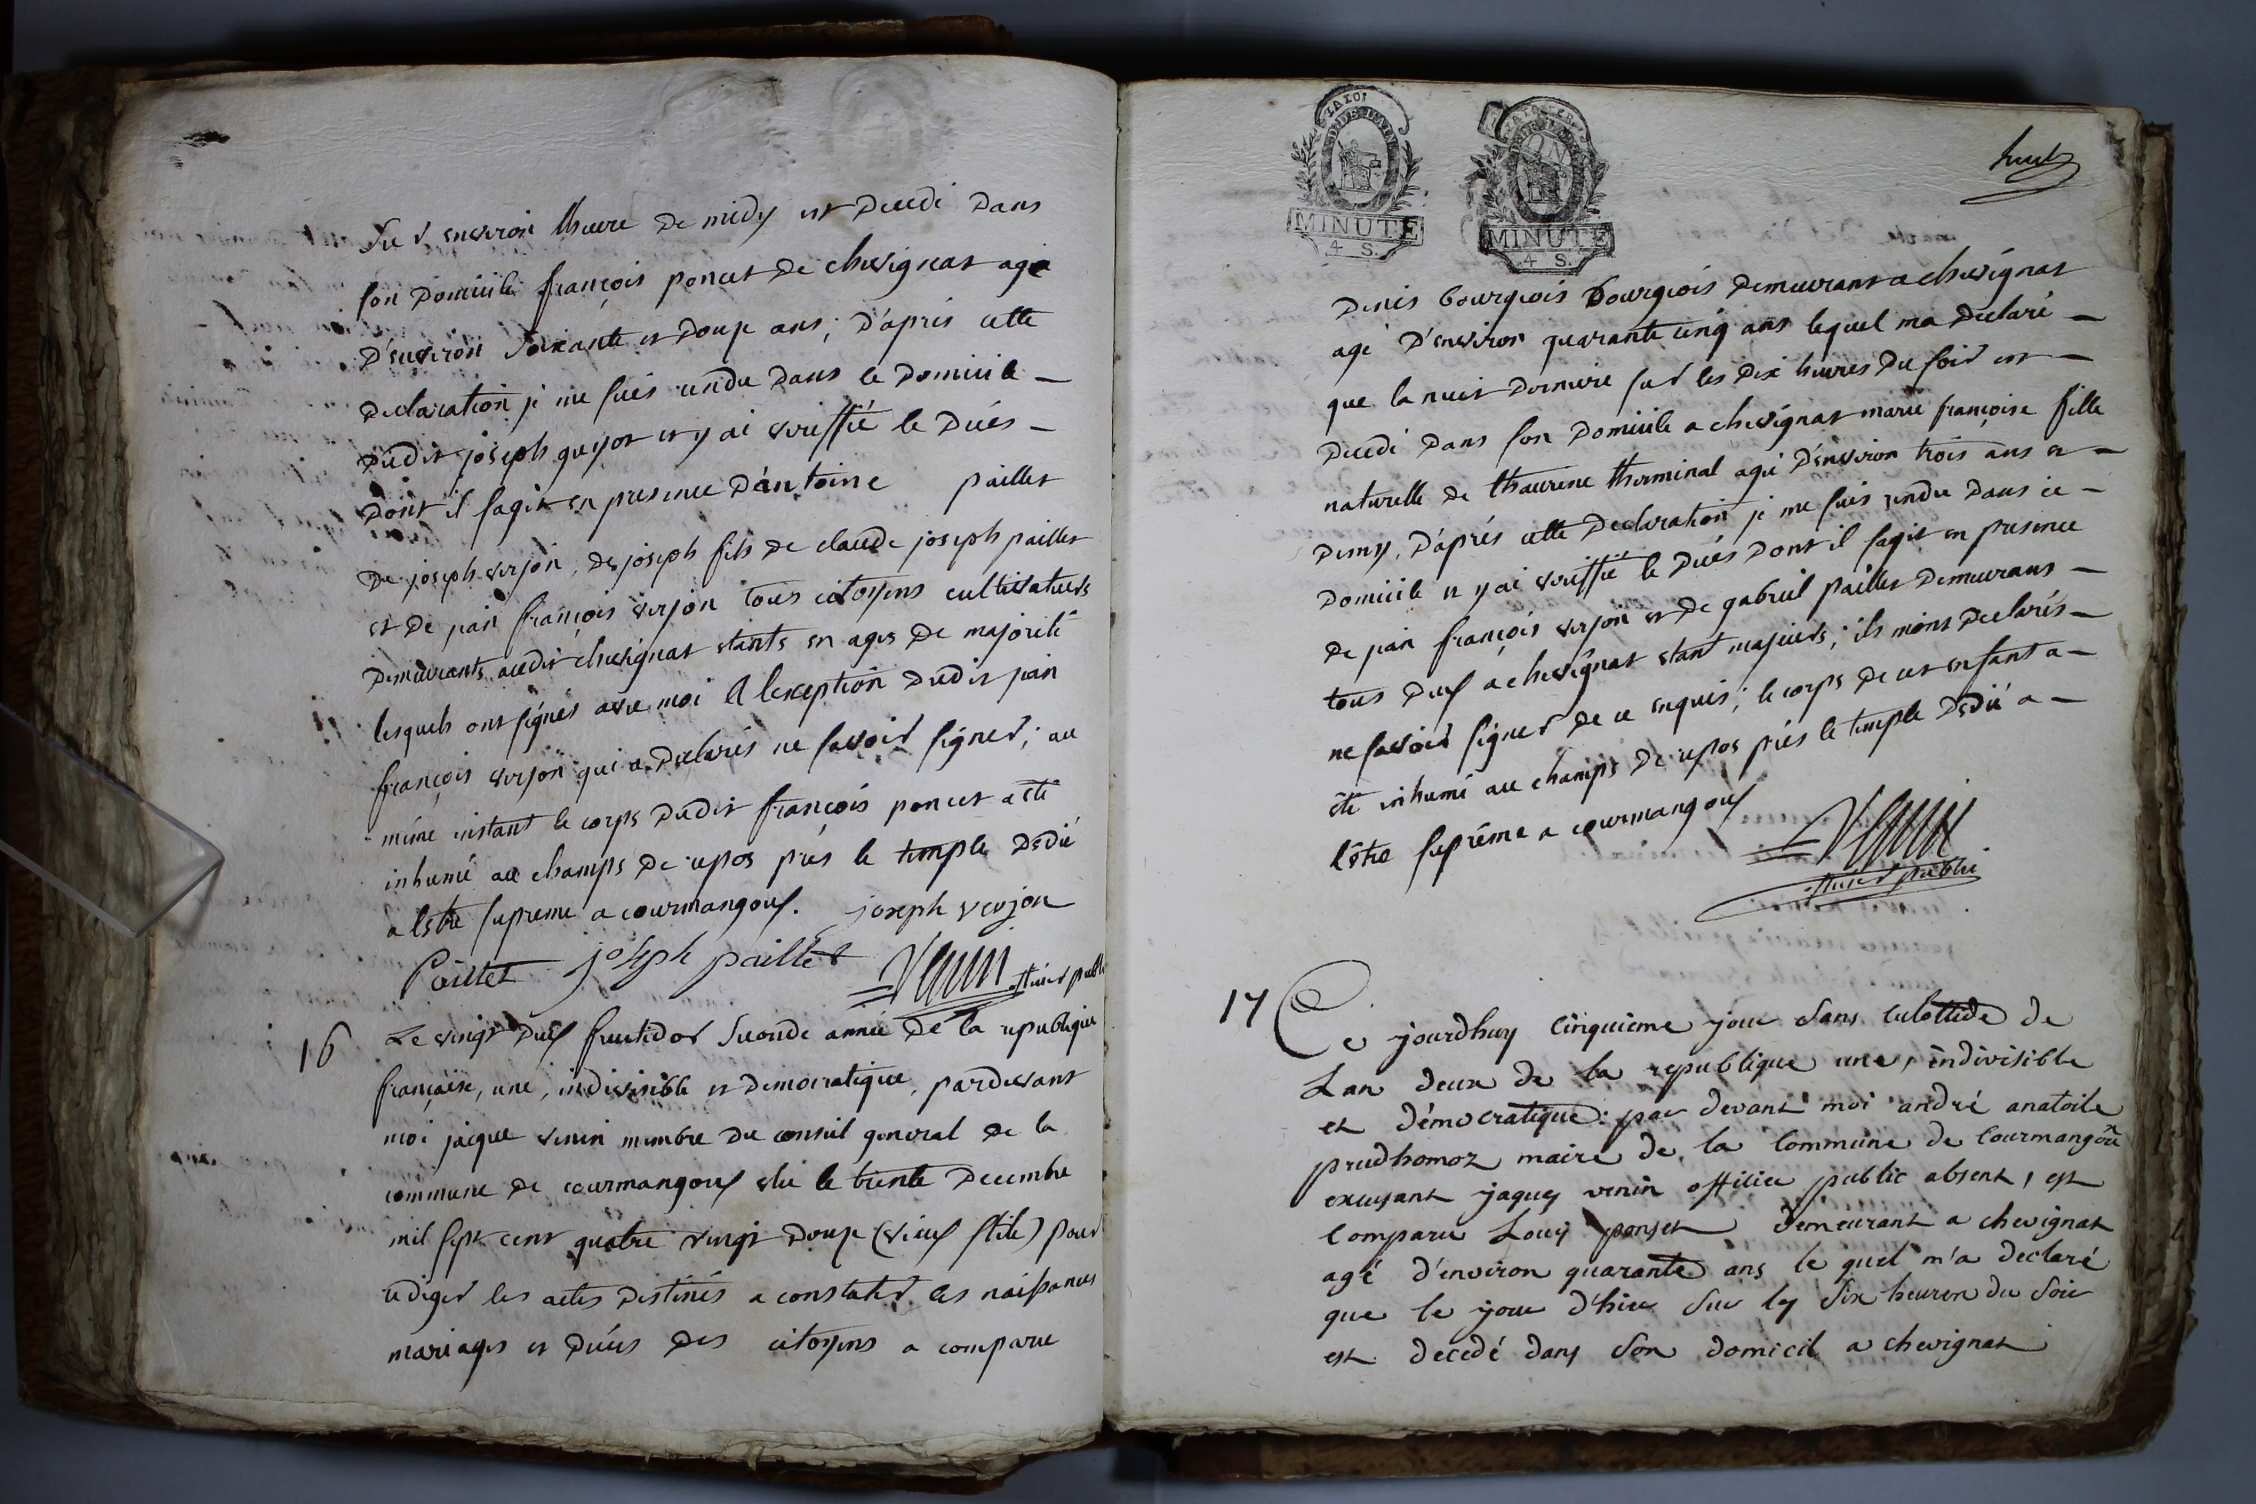 Sur environ lheure de midy est decedé dans
son domicile françois poncet de chevignat agé
d'environ soixante et douze ans; d'après cette
declaration je me suis rendu dans le domicile –
dudit joseph guyot et y ai veriffié le decés –
dont il sagit en presence d'antoine paillet
de joseph verjon, de joseph fils de claude joseph paillet
et de jean françois verjon tous citoyens cultivateurs
demeurants audit chevignat etants en ages de majorité
lesquels ont signés avec moi a lexception dudit jean
françois verjon qui a declarés ne savoir signer; au
même instant le corps dudit françois poncet a eté
inhumé au champs de repos prés le temple dedié
a lestre supreme a courmangoux. joseph verjon
Paillet joseph paillet Venin officier public
16 Le vingt deux fructidor seconde année de la republique
française, une, indivisible et democratique, pardevant
moi jacque venin membre du conseil general de la
commune de courmangoux elu le trente decembre
mil sept cent quatre vingt douze (vieux stile) pour
rediger les actes destinés a constater les naissances
mariages et decés des citoyens a comparu
IAIOI
MINUTE
4 S.
MINUTE
4 S.
huit
denis bourgeois bourgeois demeurant a chevignat
agé d'environ quarante cinq ans lequel ma declaré –
que la nuit derniere sur les dix heures du soir est –
decedé dans son domicile a chevignat marie françoise fille
naturelle de thaurine therminal agée d'environ trois ans et –
demy, d'aprés cette declaration je me suis rendu dans ce –
domicile et y ai veriffié le decés dont il sagit en presence
de jean françois verjon et de gabriel paillet demeurans –
tous deux a chevignat etant majeurs; ils m'ont declarés –
ne savoir signer de ce enquis; le corps de cet enfant a –
été inhumé au champs de repos prés le temple dedié a –
l'être suprême a courmangoux
Venin
officier public
17 Ce jourdhuy cinquieme jour sans culottide de
Lan deux de la republique une, indivisible
et démocratique: par devant moi andré anatoile
prudhomoz maire de la commune de Courmangoû
excusant jaques venin officier public absent, est
Comparu Louis ponset demeurant a chevignat
agé d'environ quarante ans le quel m'a declaré
que le jour d'hier sur les six heures du soir
est decedé dans son domicil a chevignat